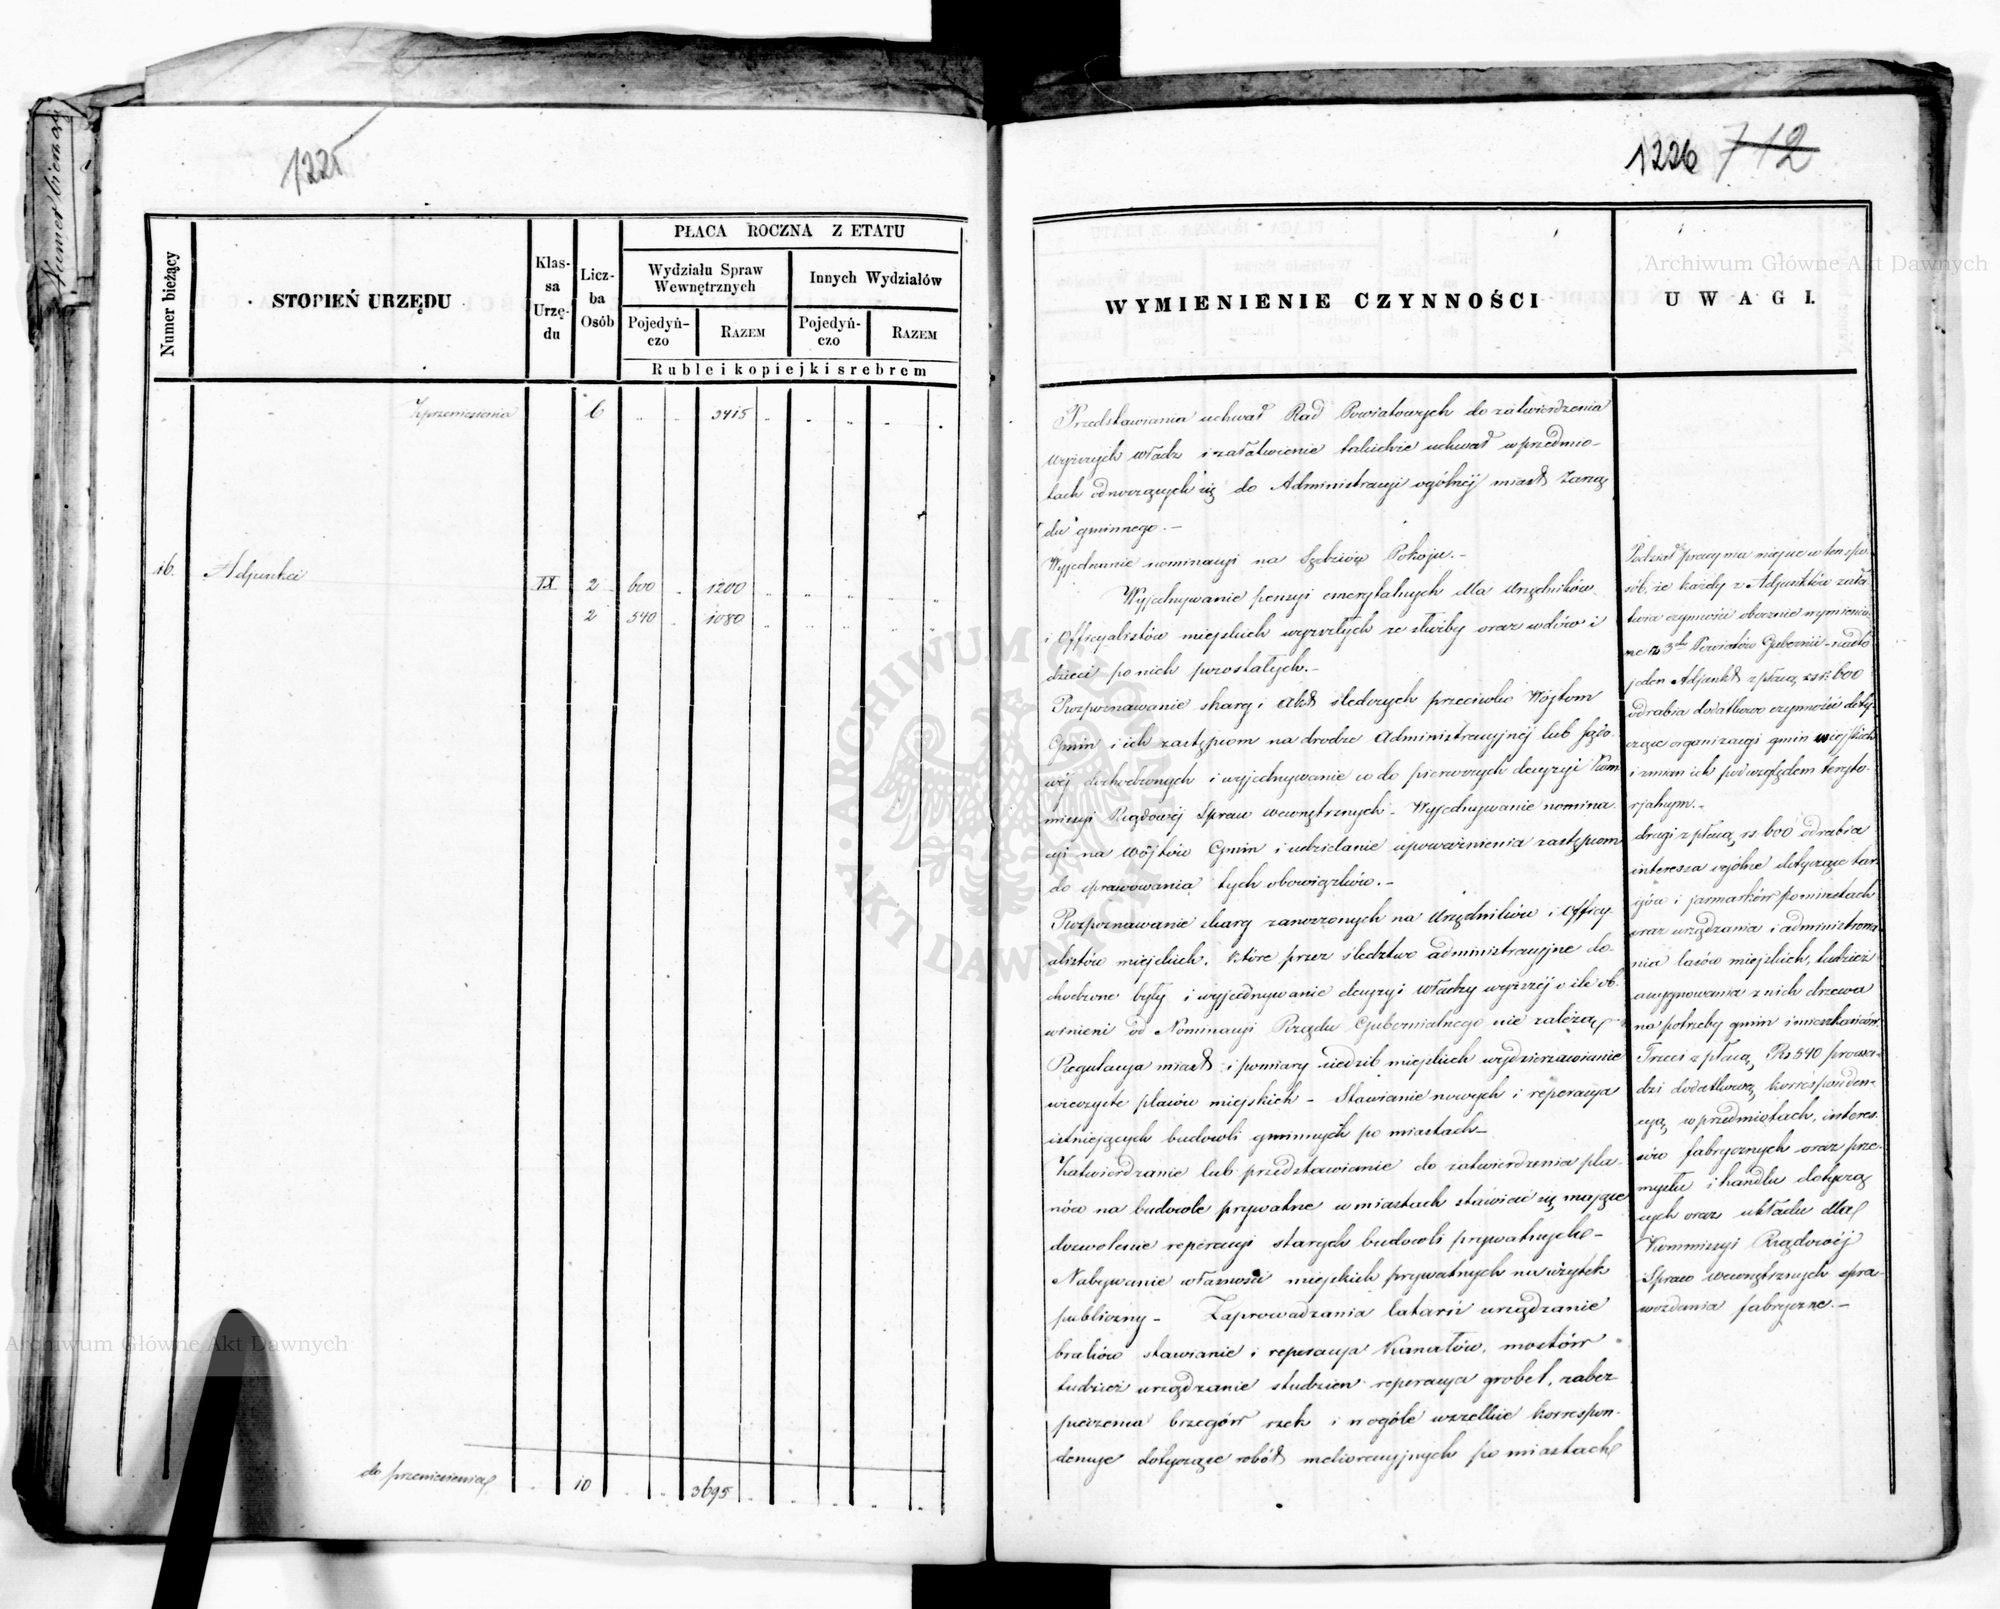 Numer bieżący
1225
Numer bieżący
STOPIEŃ URZĘDU
Klas-
sa
Urzę-
du
Licz-
ba
Osób
PŁACA ROCZNA Z ETATU
Wydziału Spraw
Wewnętrznych
Innych Wydziałów
Pojedyń-
czo
RAZEM
Pojedyń-
czo
RAZEM
Ruble i kopiejki srebrem
Z przeniesienia 6 3415
16. Adjunkci IX 2 600 1200
2 540 1080
do przeniesienia 10 3695
1226 712
WYMIENIENIE CZYNNOŚCI
UWAGI.
Przedstawiania uchwał Rad Powiatowych do zatwierdzenia
wyższych władz i załatwienie takichże uchwał w przedmio-
tach odnoszących się do Administracyi ogólnej miast Zarzą
du gminnego.-
Wyjednanie nominacyi na Sędziów Pokoju.-
Wyjednywanie pensyi emerytalnych dla Urzędników
i Officyalistów miejskich wyszłych ze służby oraz wdów i
dzieci po nich pozostałych.-
Rozpoznawanie skarg i Akt śledczych przeciwko Wójtom
Gmin i ich zastępcom na drodze Administracyjnej lub Sądo-
wéj dochodzonych i wyjednywanie co do pierwszych decyzyi Kom
missyi Rządowéj Spraw wewnętrznych - Wyjednywanie nomina
cyi na Wójtów Gmin i udzielanie upoważnienia zastępcom
do sprawowania tych obowiązków.-
Rozpoznawanie skarg zanoszonych na Urzędników i Officy-
alistów miejskich, które przez śledztwo administracyjne do-
chodzone były i wyjednywanie decyzyi władzy wyższéj o ile ob-
winieni od Nominacyi Rządu Gubernialnego nie zależą
Regulacya miast i pomiary siedzib miejskich wydzierżawianie
wieczyste placów miejskich - Stawianie nowych i reperacya
istniejących budowli gminnych po miastach-
Zatwierdzanie lub przedstawianie do zatwierdzenia pla-
nów na budowle prywatne w miastach stawiać się mające
dozwolenie reperacyi starych budowli prywatnych-
Nabywanie własności miejskich prywatnych na użytek
publiczny - Zaprowadzania latarń urządzanie
bruków stawianie i reperacya Kanałów, mostów
tudzież urządzanie studzien reperacya grobel, zabez-
pieczenia brzegów rzek i w ogóle wszelkie korrespon-
dencye dotyczące robót melioracyjnych po miastach
Podział pracy ma miejsce w ten spo-
sób, że każdy z Adjunktów zała-
twia czynności obocznie wymienio-
ne z 3ch Powiatów Gubernii - nadto
jeden Adjunkt z płacą rs. 600
odrabia dodatkowo czynności doty-
czące organizacyi gmin wiejskich
i zmian ich pod względem teryto-
rjalnym.-
drugi z płacą rs 600 odrabia
interessa ogólne dotyczące tar-
gów i jarmarków po miastach
oraz urządzania i administrowa-
nia lasów miejskich, tudzież
assygnowania z nich drzewa
na potrzeby gmin i mieszkańców.
Trzeci z płacą Rs 540 prowa-
dzi dodatkową korresponden-
cyą w przedmiotach, interes-
sów fabrycznych oraz prze-
mysłu i handlu dotyczą
cych oraz układa dla
Kommissyi Rządowéj
Spraw wewnętrznych spra-
wozdania fabryczne.-
Archiwum Główne Akt Dawnych
Archiwum Główne Akt Dawnych
ARCHIWUM GŁÓWNE AKT DAWNYCH